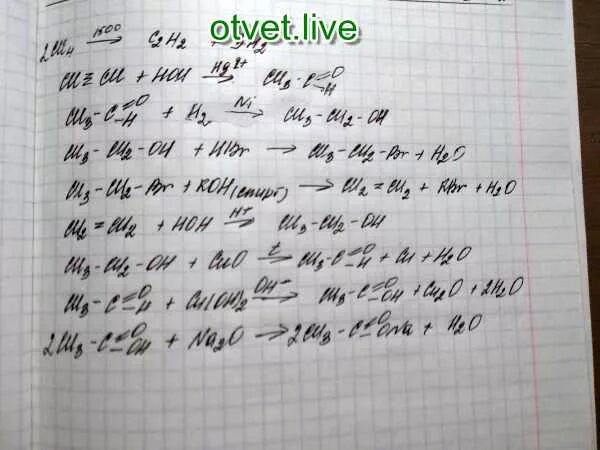 otvet.live
2CH₄ —1500→ C₂H₂ + 3H₂
CH≡CH + HOH —Hg²⁺→ CH₃-C(=O)-H
CH₃-C(=O)-H + H₂ —Ni→ CH₃-CH₂-OH
CH₃-CH₂-OH + HBr → CH₃-CH₂-Br + H₂O
CH₃-CH₂-Br + ROH(спирт) → CH₂=CH₂ + RBr + H₂O
CH₂=CH₂ + HOH —H⁺→ CH₃-CH₂-OH
CH₃-CH₂-OH + CuO —t→ CH₃-C(=O)-H + Cu + H₂O
CH₃-C(=O)-H + Cu(OH)₂ —OH⁻→ CH₃-C(=O)-OH + Cu₂O + 2H₂O
2CH₃-C(=O)-OH + Na₂O → 2CH₃-C(=O)-ONa + H₂O